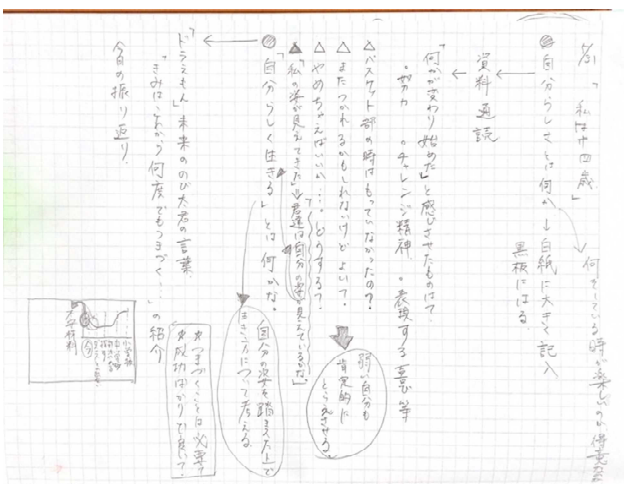 「私は十四歳」
何をしている時が楽しいのか 得意か
◎自分らしさとは何か → 白紙に大きく記入
黒板にはる
資料通読
「何かが変わり始めた」と感じさせたものは?
・努力 ・チャレンジ精神 ・表現する喜び 等
△バスケット部の時はもっていなかったの?
△またつかれるかもしれないけどよい?
△やめちゃえばいい…。どうする?
弱い自分も
肯定的に
とらえさせる
▲「私の姿が見えてきた」⇒君達は自分の姿が見えているかな。
◎「自分らしく生きる」とは何かな。
自分の姿を踏まえた上で
生き方について考える
「ドラえもん」未来ののび太君の言葉
「きみはこれから何度でもつまづく…」の紹介
☆つまづくことは必要?
☆成功ばかりで良い?
今日の振り返り